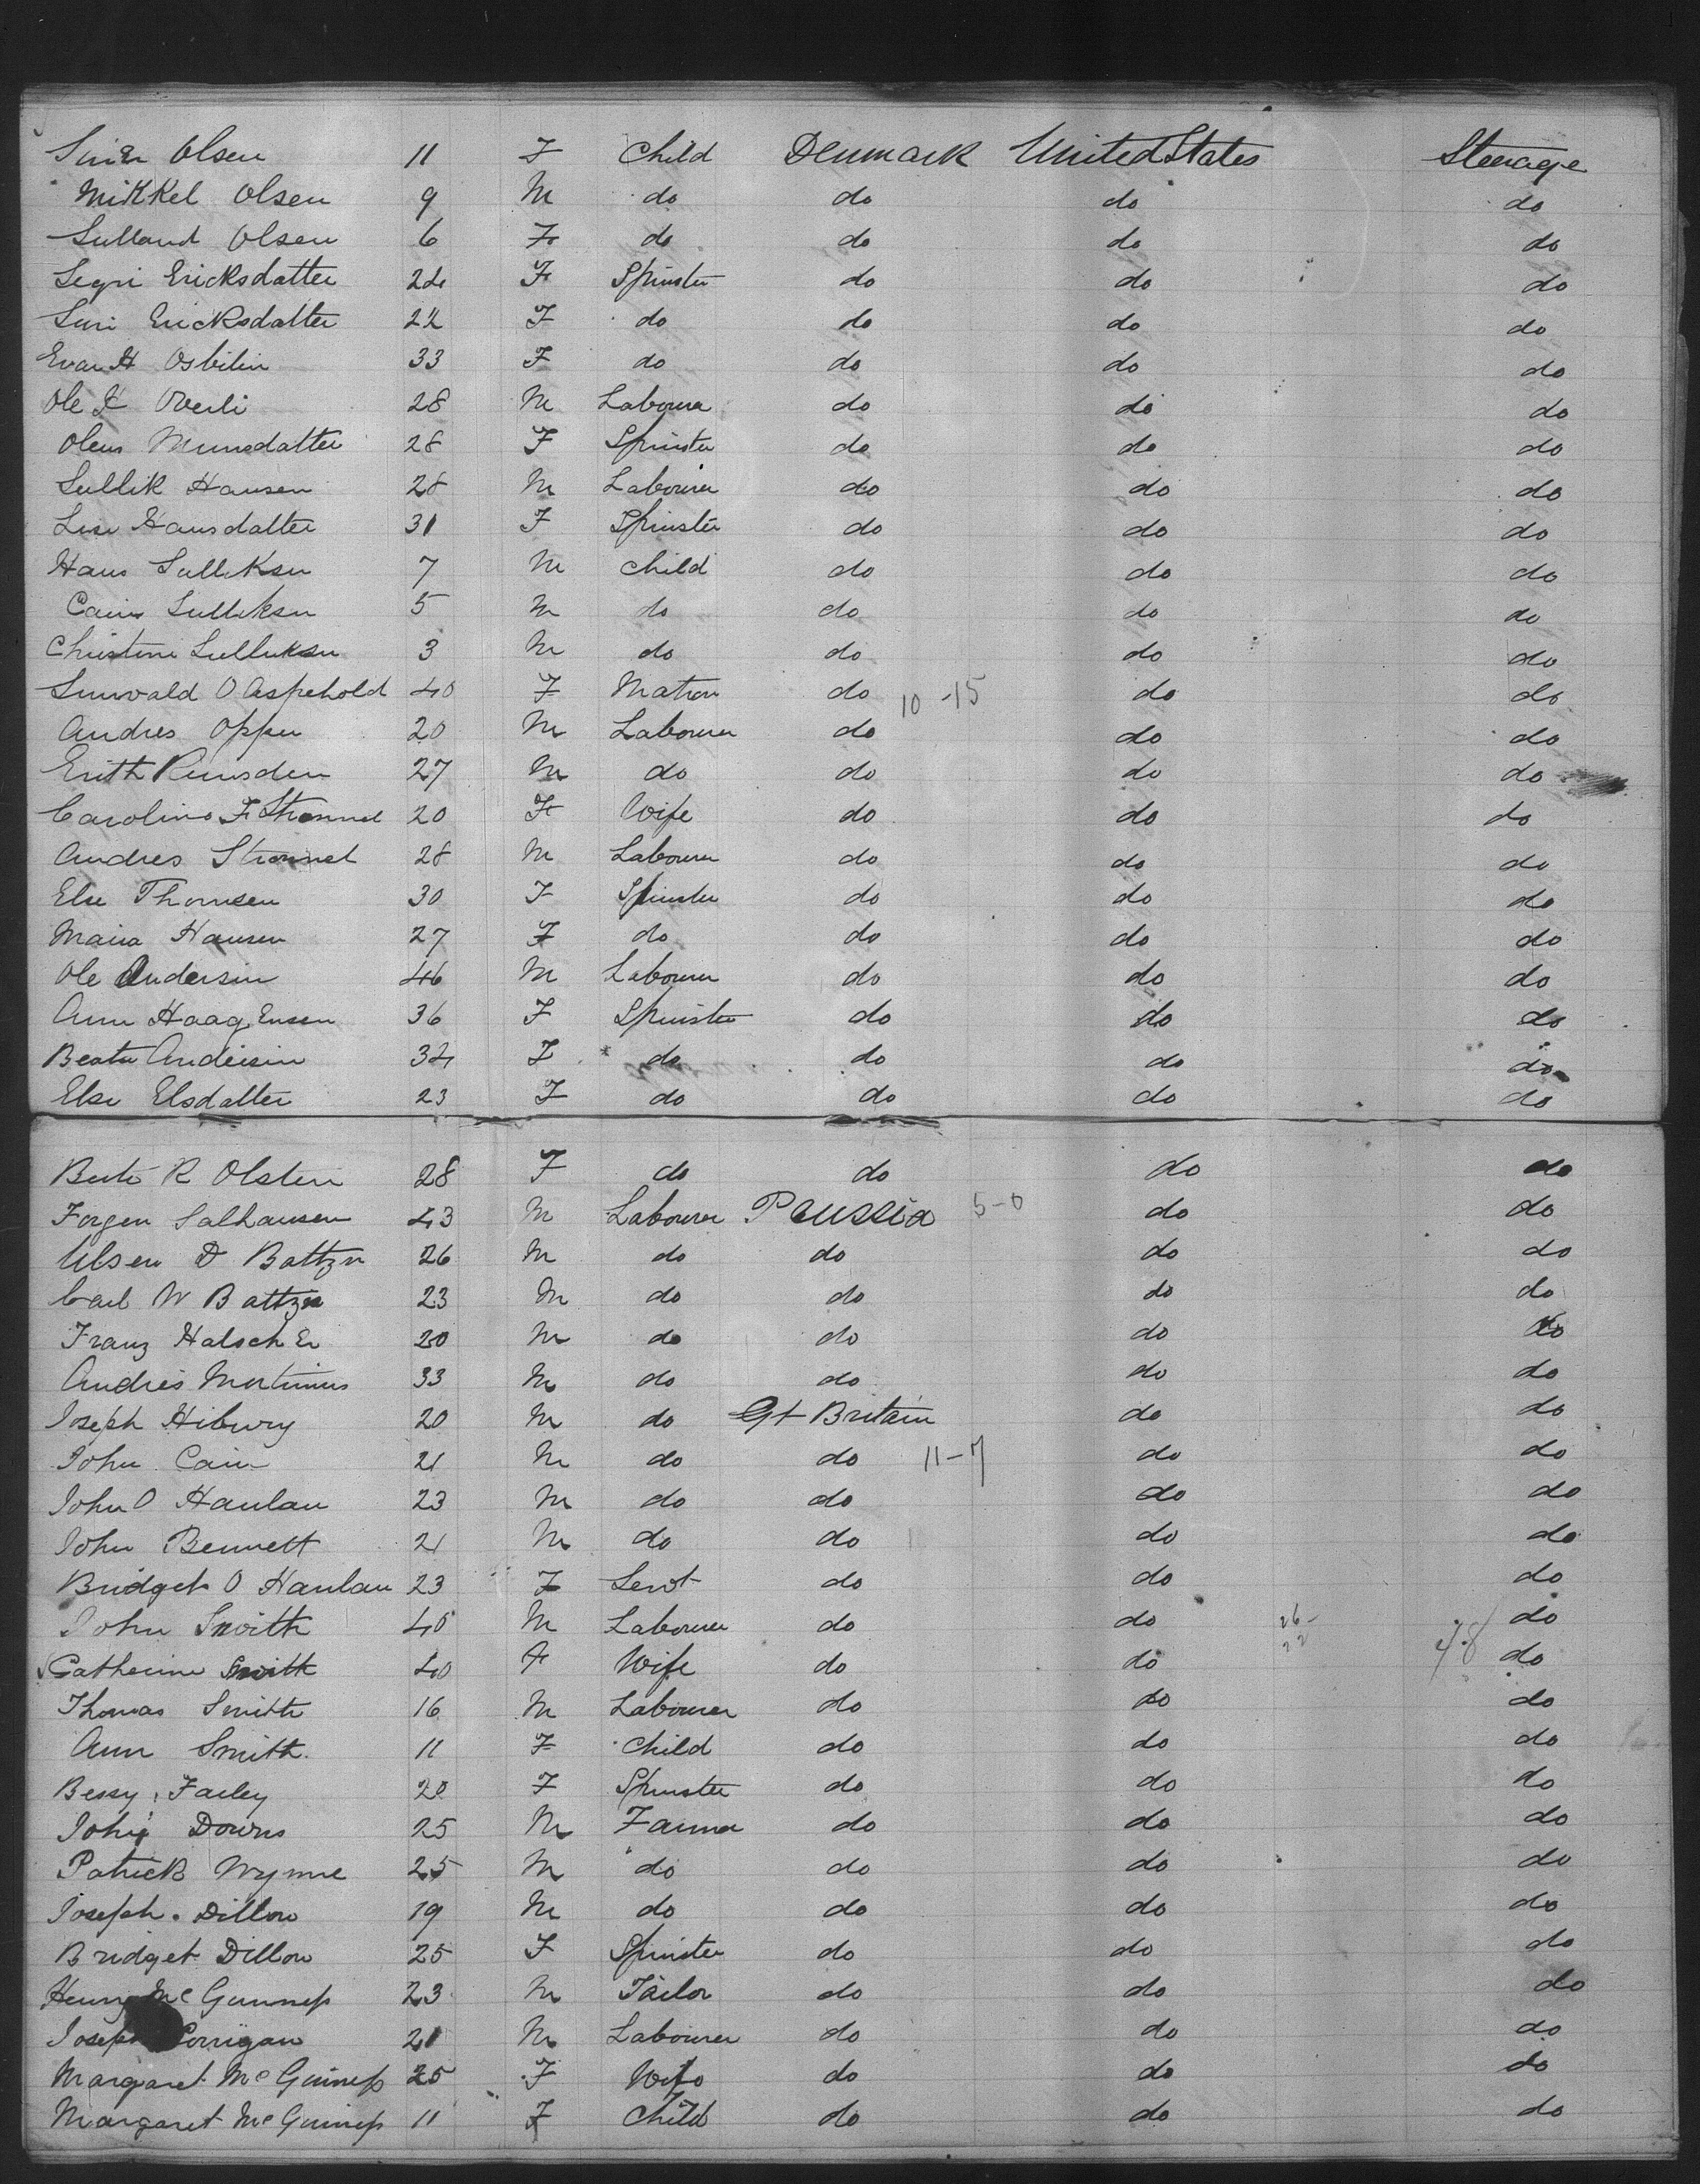 Olsen 11 F Child Denmark United States Steerage
Mikkel Olsen 9 M do do do do
Sulland Olsen 6 F do do do do
Segri Ericksdatter 24 F Spinster do do do
Siri Ericksdatter 22 F do do do do
Evan H 33 F do do do do
Ole H Overli 28 M Labourer do do do
28 F Spinster do do do
Sullik Hansen 28 M Labourer do do do
Lise Hansdatter 31 F Spinster do do do
Hans Sulliksen 7 M Child do do do
5 M do do do do
Christine Sulliksen 3 M do do do do
Sunvald O Aspehold 40 F Matron do 10-15 do do
Andres Oppen 20 M Labourer do do do
27 M do do do do
Caroline F 20 F Wife do do do
Andres 28 M Labourer do do do
Else Thomsen 30 F Spinster do do do
Maria Hansen 27 F do do do do
Ole Andersin 46 M Labourer do do do
Ann Haagensen 36 F Spinster do do do
Beata Andersin 34 F do do do do
Else Elsdatter 23 F do do do do
R Olsten 28 F do do do do
Jorgen Salhausen 43 M Labourer Prussia 5-0 do do
D Battzn 26 M do do do do
Carl W Battzn 23 M do do do do
Franz Halscher 20 M do do do do
Andres 33 M do do do do
Joseph 20 M do Gt Britain do do
John Cain 21 M do do 11-7 do do
John O Hanlan 23 M do do do do
John Bennett 21 M do do do do
Bridget O Hanlan 23 F Servt do do do
John Smith 40 M Labourer do do 26- do
Catherine Smith 40 F Wife do do 22 48 do
Thomas Smith 16 M Labourer do do do
Ann Smith 11 F Child do do do
Bessy Farley 20 F Spinster do do do
John Downs 25 M Farmer do do do
Patrick Wynne 25 M do do do do
Joseph Dillon 19 M do do do do
Bridget Dillon 25 F Spinster do do do
Henry Mc Guiness 23 M Tailor do do do
Joseph Corrigan 21 M Labourer do do do
Margaret Mc Guiness 25 F Wife do do do
Margaret Mc Guiness 11 F Child do do do